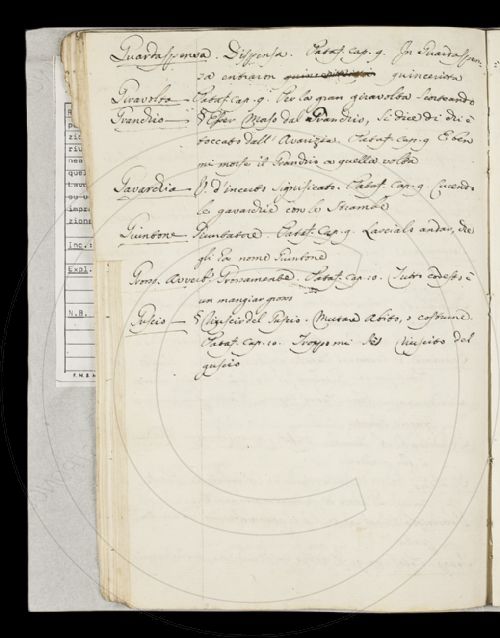 Guardaspensa. Dispensa. Pataf. cap. 9. In Guardaspen-
sa entraron quinceririta
Giravolta Pataf. cap. 9. Per la gran giravolta
Grandrio § Esser Morso dal Grandrio, si dice di chi è
toccato dall' Avarizia. Pataf. cap. 9 E ben
mi morse il Grandrio a quella volta
Gavardia V. d'incerto significato. Pataf. cap. 9
le gavardie con le Strambe
Guintone Pataf. Cap. 9. Lascialo andar, che
gli ha nome Guintone
Gross. Avverb. Grossamente. Pataf. cap. 10. Tutto codesto è
un mangiar gross
Guscio § Uscir del Guscio. Mutare Abito, o costume.
Pataf. cap. 10. Troppo mi sei Uscito del
guscio
N.B.